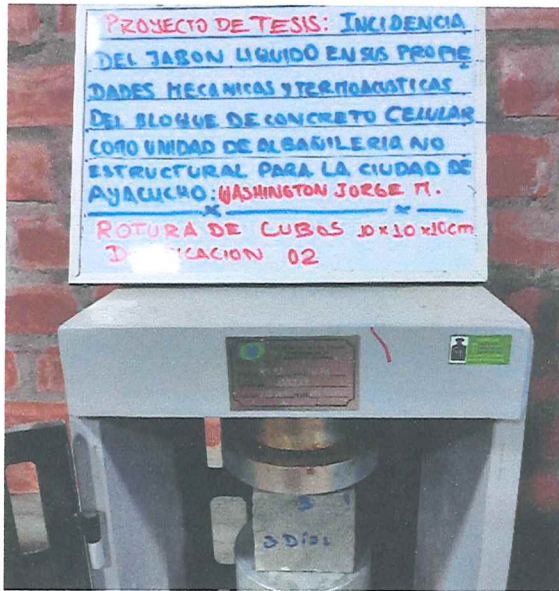 PROYECTO DE TESIS: INCIDENCIA
DEL JABON LIQUIDO EN SUS PROPIE
DADES MECANICAS Y TERMOACUSTICAS
DEL BLOQUE DE CONCRETO CELULAR
COMO UNIDAD DE ALBAÑILERIA NO
ESTRUCTURAL PARA LA CIUDAD DE
AYACUCHO: WASHINGTON JORGE M.
ROTURA DE CUBOS 10x10x10cm
02
3 DíAS